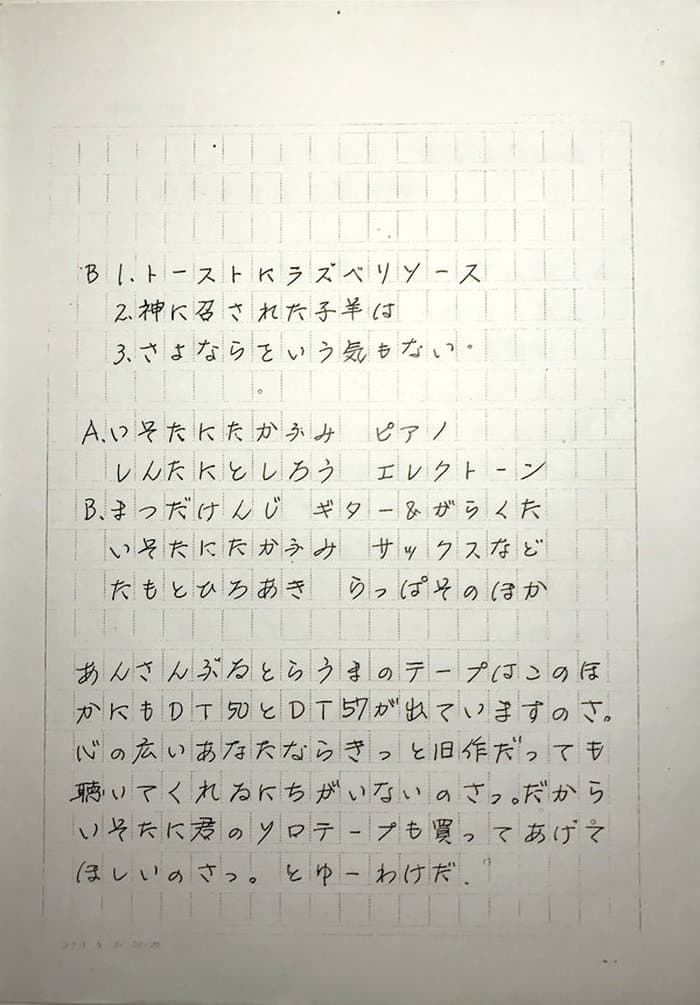 B 1.トーストにラズベリソース
2.神に召された子羊は
3.さよならをいう気もない。
A.いそたにたかふみ ピアノ
しんたにとしろう エレクトーン
B.まつだけんじ ギター&がらくた
いそたにたかふみ サックスなど
たもとひろあき らっぱそのほか
あんさんぶるとらうまのテープはこのほ
かにもDT50とDT57が出ていますのさ。
心の広いあなたならきっと旧作だっても
聴いてくれるにちがいないのさっ。だから
いそたに君のソロテープも買ってあげて
ほしいのさっ。とゆーわけだ.